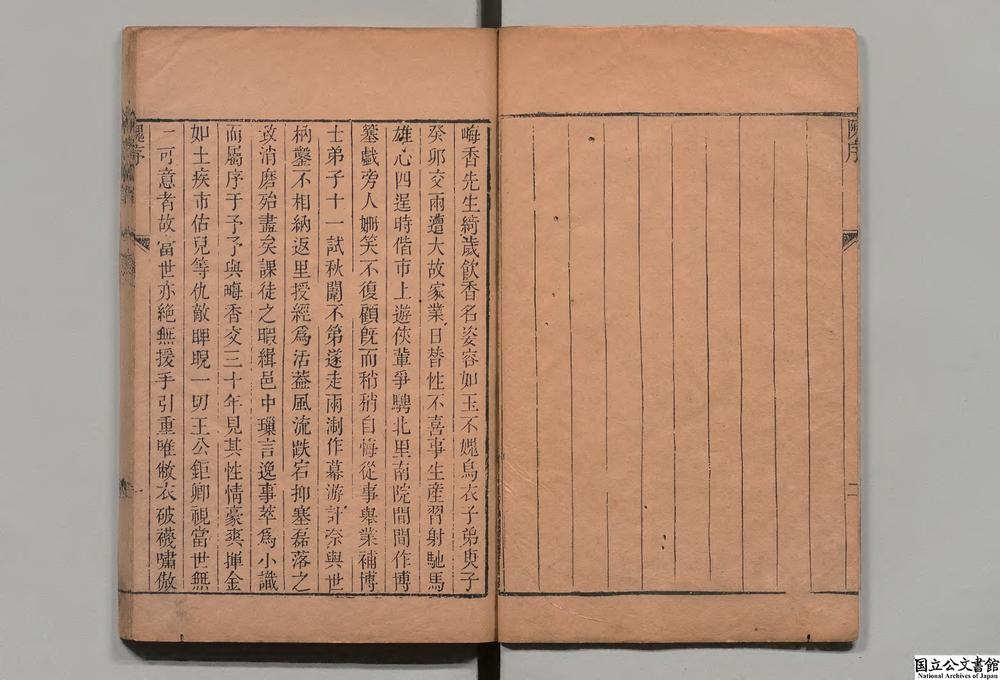 陳序
二
晦香先生綺歲飲香名姿容如玉不媿烏衣子弟庚子
癸卯交兩遭大故家業日替性不喜事生産習射馳馬
雄心四逞時偕市上遊俠軰爭騁北里南院間間作博
簺戲旁人姍笑不復顧旣而稍稍自悔從事舉業補博
士弟子十一試秋闈不第遂走兩淛作幕游計奈與世
枘鑿不相納返里授經爲活葢風流跌宕抑塞磊落之
致消磨殆盡矣課徒之暇緝邑中璅言逸事萃爲小識
而屬序于予予與晦香交三十年見其性情豪爽揮金
如土疾市估兒等仇敵睥睨一切王公鉅卿視當世無
一可意者故當世亦絶無援手引重雎敝衣破襪嘯傲
序
一
国立公文書館
National Archives of Japan